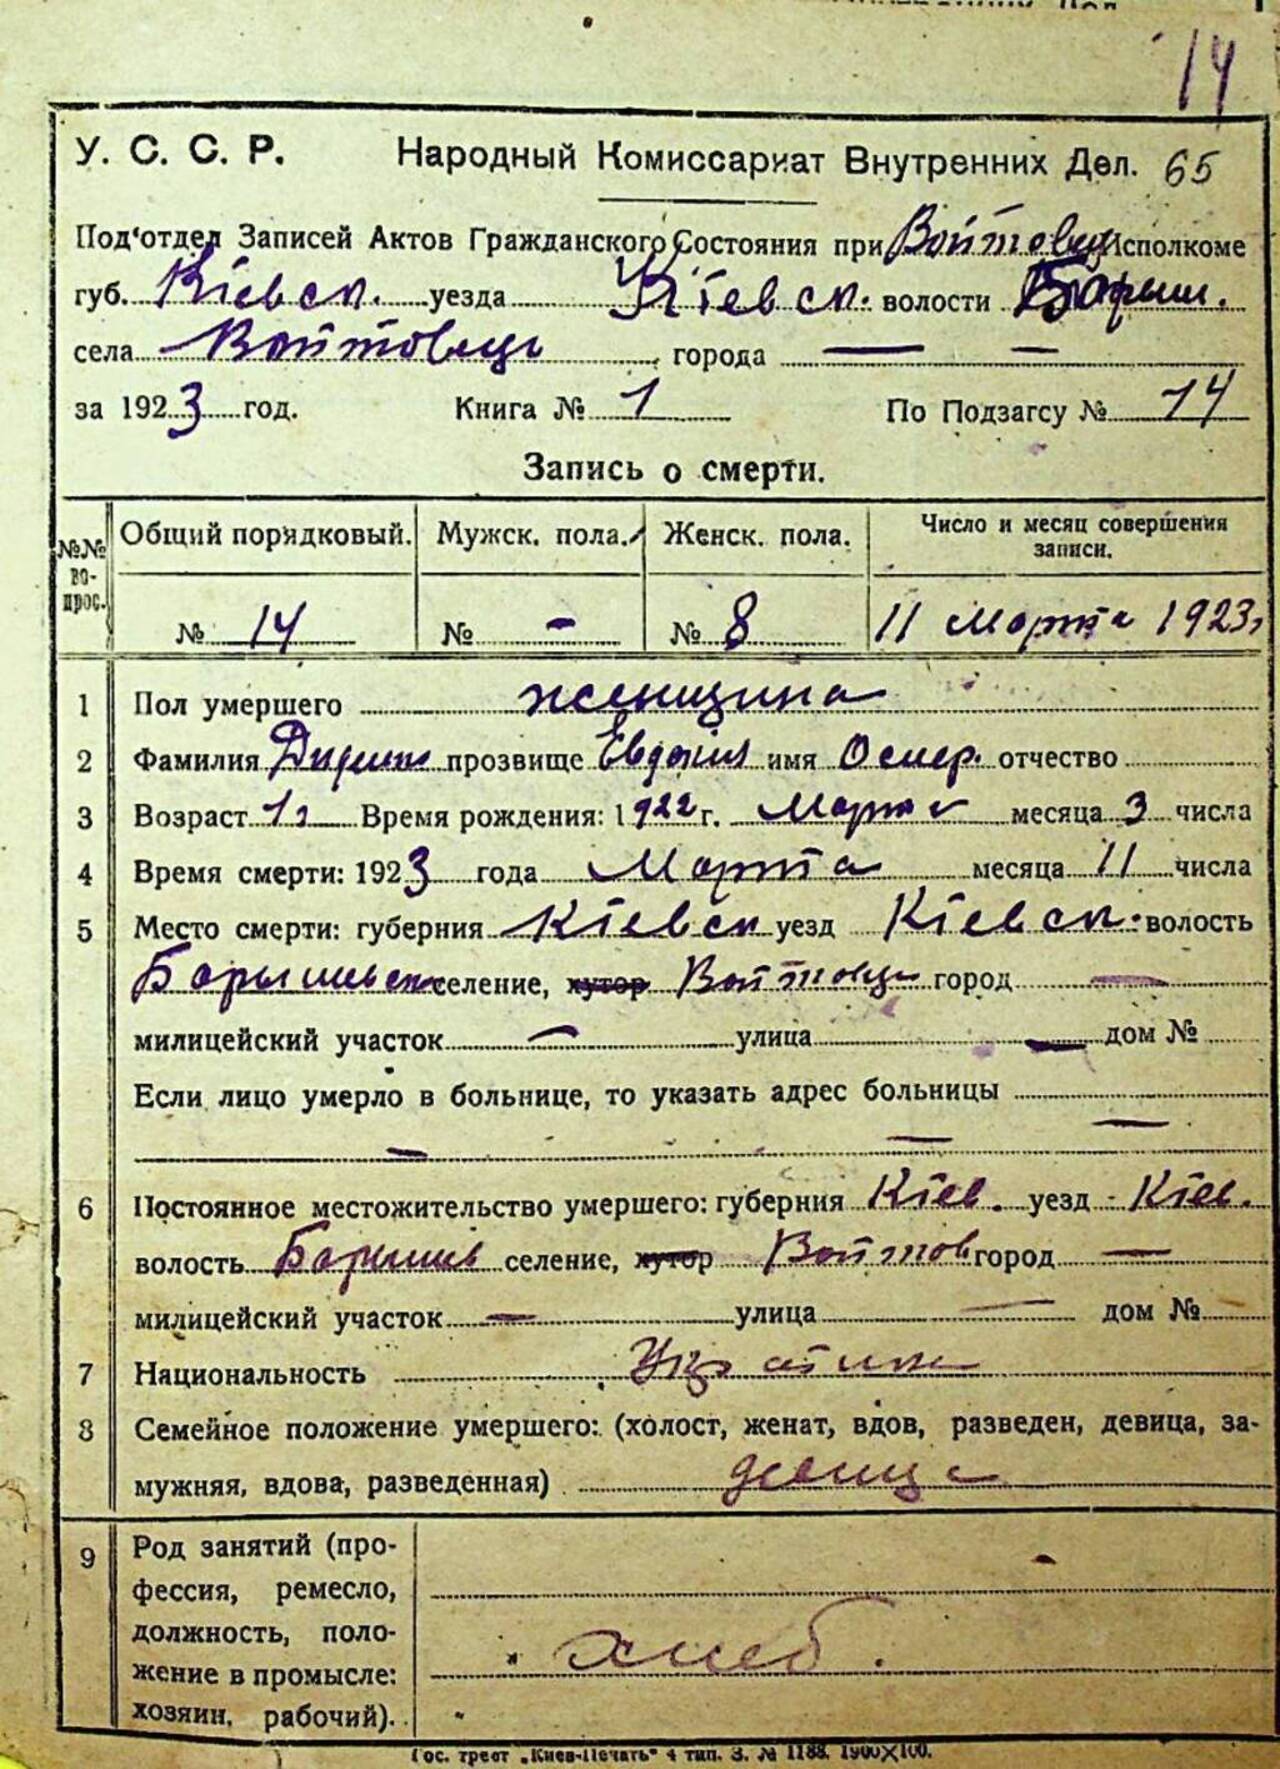 14
У. С. С. Р. Народный Комиссариат Внутренних Дел. 65
Под'отдел Записей Актов Гражданского Состояния при Войтовец Исполкоме
губ. Кіевск. уезда Кіевск. волости Барыш.
села Войтовец города — —
за 1923 год. Книга № 1 По Подзагсу № 14
Запись о смерти.
№№ во-прос. Общий порядковый. Мужск. пола. Женск. пола. Число и месяц совершения записи.
№ 14 № - № 8 11 Марта 1923
1 Пол умершего женщина
2 Фамилия прозвище Евдокия имя отчество
3 Возраст 1 г Время рождения: 1922 г. Марта месяца 3 числа
4 Время смерти: 1923 года Марта месяца 11 числа
5 Место смерти: губерния Кіевск уезд Кіевск. волость
Барышевск селение, хутор Войтовцы город —
милицейский участок — улица — дом №
Если лицо умерло в больнице, то указать адрес больницы —
— —
6 Постоянное местожительство умершего: губерния Кіев. уезд Кіев.
волость Барышев селение, хутор Войтов город —
милицейский участок — улица — дом №
7 Национальность
8 Семейное положение умершего: (холост, женат, вдов, разведен, девица, за-
мужняя, вдова, разведенная) девица
9 Род занятий (про-
фессия, ремесло,
должность, поло-
жение в промысле:
хозяин, рабочий).
хлеб.
Гос. трест „Киев-Печать" 4 тип. З. № 1188. 1900×100.